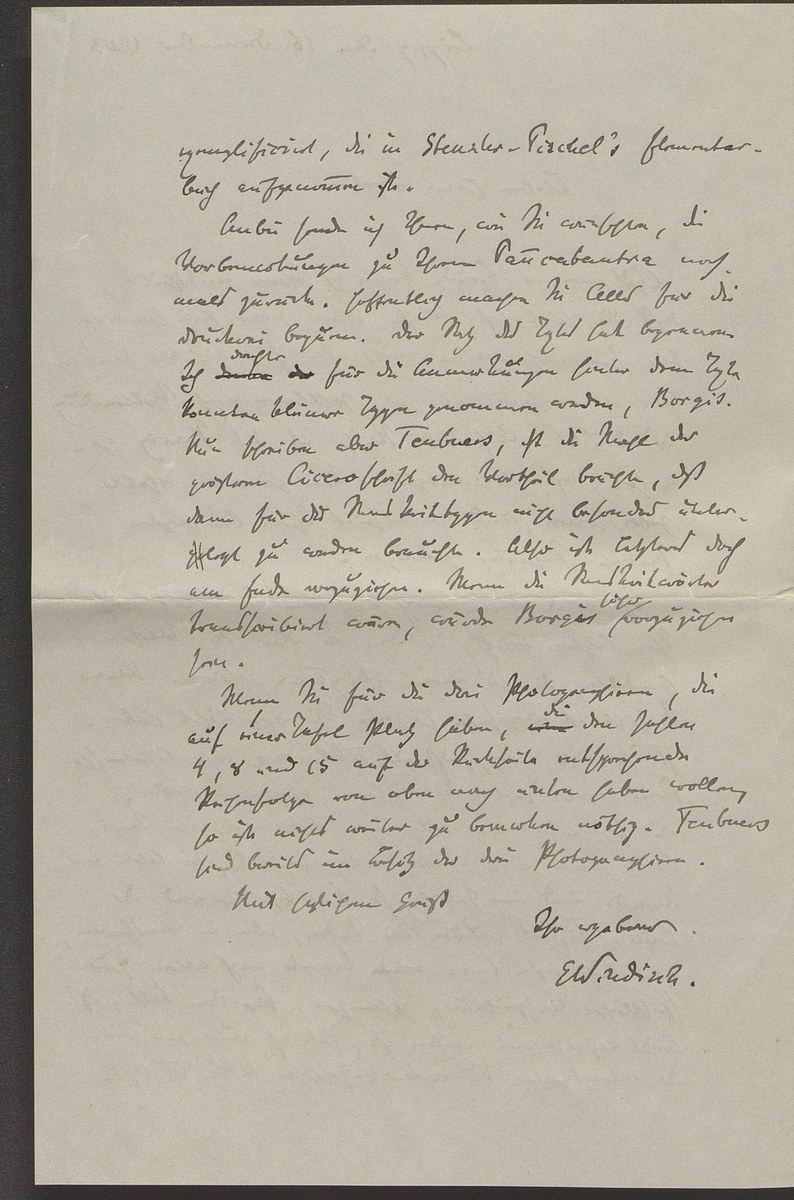 exemplificirt, die in Stenzler-Pischel's Elementar-
buch aufgenommen ist.
Anbei sende ich Ihnen, wie Sie wünschten, die
Vorbemerkungen zu Ihrem Pañcatantra noch-
mals zurück. Hoffentlich machen Sie Alles für die
Druckerei bequem. Der Satz des Textes hat begonnen.
Ich dachte für die Anmerkungen hinter dem Texte
könnten kleinere Typen genommen werden, Borgis.
Nun schreiben aber Teubners, dß die Wahl der
größeren Ciceroschrift den Vortheil brächte, dß
dann für die Sanskrittypen nicht besonders unter-
legt zu werden brauchte. Also ist letzteres doch
am Ende vorzuziehen. Wenn die Sanskritwörter
transscribirt wären, würde Borgis vorzuziehen
sein.
Wenn Sie für die drei Photographieen, die
auf einer Tafel Platz haben, die den Zahlen
4, 8 und 15 auf der Rückseite entsprechende
Reihenfolge von oben nach unten haben wollen,
so ist nichts weiter zu bemerken nöthig. Teubners
sind bereits im Besitz der drei Photographieen.
Mit herzlichem Gruß
Ihr ergebener
EWindisch.